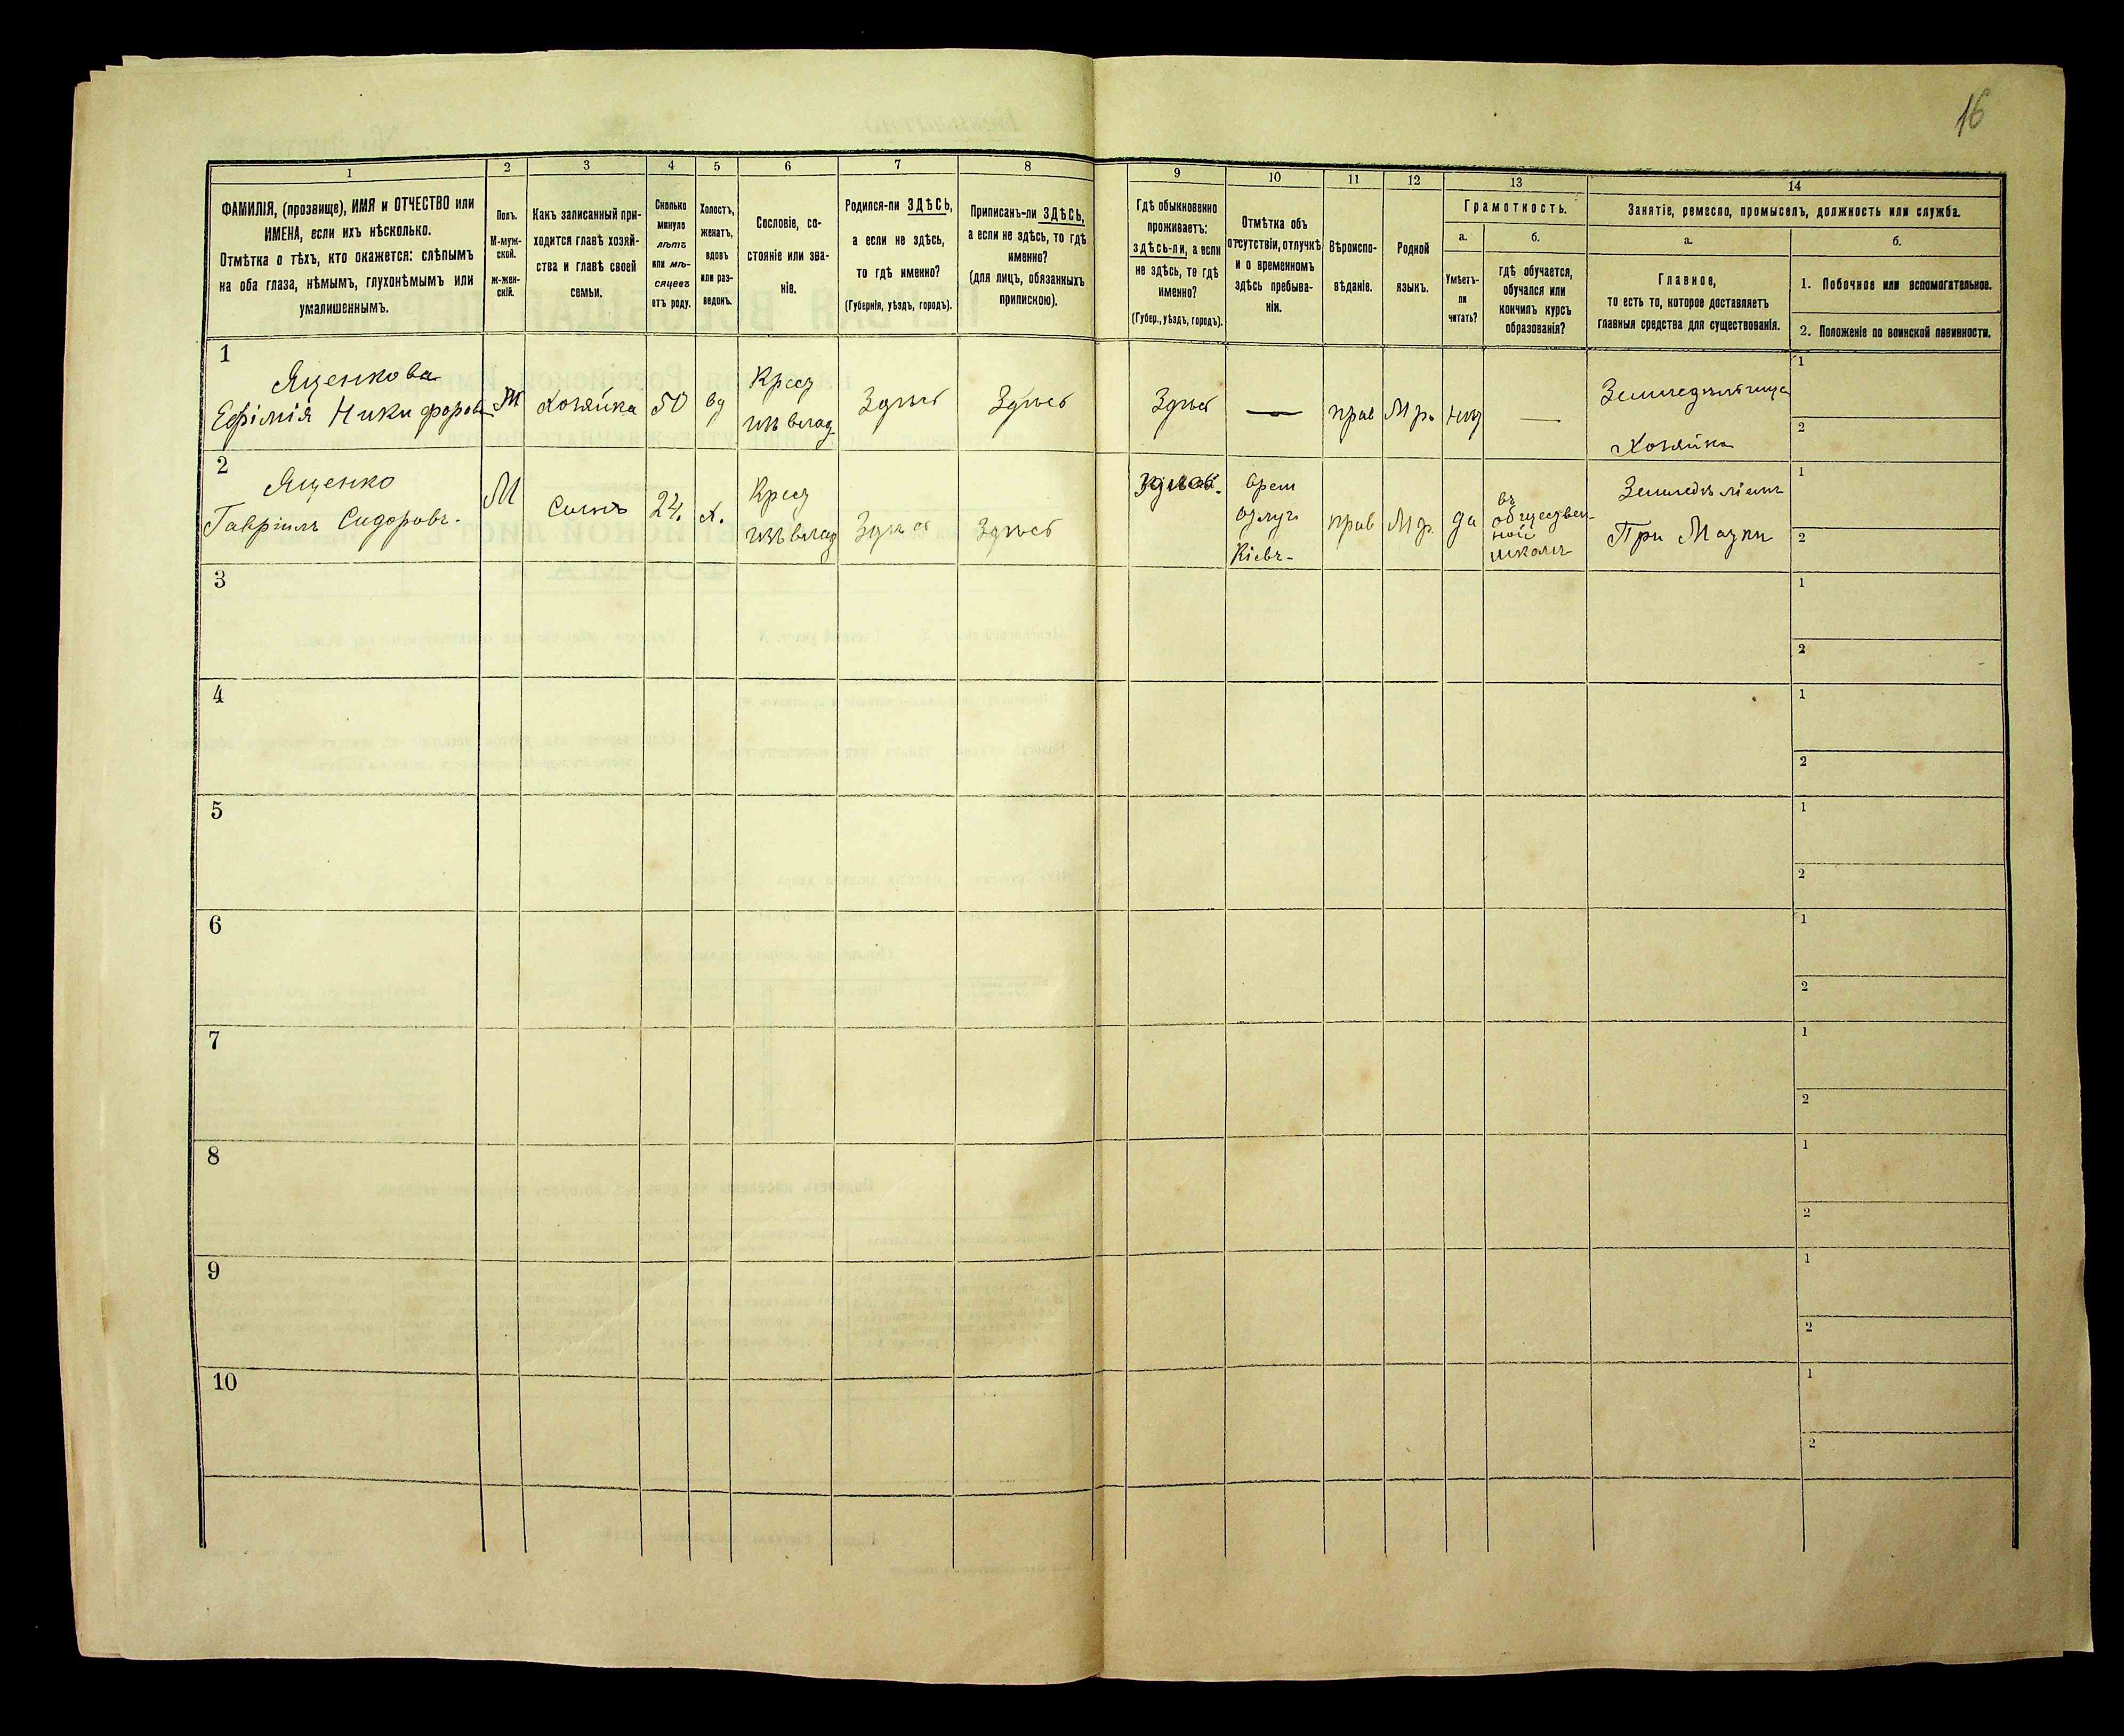 16
1
2
3
4
5
6
7
8
9
10
11
12
13
14
ФАМИЛІЯ, (прозвище), ИМЯ и ОТЧЕСТВО или
ИМЕНА, если ихъ нѣсколько.
Отмѣтка о тѣхъ, кто окажется: слѣпымъ
на оба глаза, нѣмымъ, глухонѣмымъ или
умалишеннымъ.
Полъ.
М-муж-
ской.
ж-жен-
скій.
Какъ записанный при-
ходится главѣ хозяй-
ства и главѣ своей
семьи.
Сколько
минуло
лѣтъ
или мѣ-
сяцевъ
отъ роду.
Холостъ,
женатъ,
вдовъ
или раз-
веденъ.
Сословіе, со-
стояніе или зва-
ніе.
Родился-ли ЗДѢСЬ,
а если не здѣсь,
то гдѣ именно?
(Губернія, уѣздъ, городъ).
Приписанъ-ли ЗДѢСЬ,
а если не здѣсь, то гдѣ
именно?
(для лицъ, обязанныхъ
припискою).
Гдѣ обыкновенно
проживаетъ:
здѣсь-ли, а если
не здѣсь, то гдѣ
именно?
(Губер., уѣздъ, городъ).
Отмѣтка объ
отсутствіи, отлучкѣ
и о временномъ
здѣсь пребыва-
ніи.
Вѣроиспо-
вѣданіе.
Родной
языкъ.
Грамотность.
а.
Умѣетъ-
ли
читать?
б.
гдѣ обучается,
обучался или
кончилъ курсъ
образованія?
Занятіе, ремесло, промыселъ, должность или служба.
а.
Главное,
то есть то, которое доставляетъ
главныя средства для существованія.
б.
1. Побочное или вспомогательное.
2. Положеніе по воинской повинности.
1
Ященкова
Ефімія Никифорова
Ж
Хозяйка
50
вд
Крест
изъ влад
Здѣсь
Здѣсь
Здѣсь
—
прав
Мр.
нет
—
Земледѣлица
Хозяйка
1
2
2
Ященко
Гавріилъ Сидоровъ.
М
Сынъ
24.
х.
Крест
изъ влад
Здѣсь
Здѣсь
врем
отлуч
Кіевъ-
прав
Мр.
да
въ
обществен-
ной
школѣ
При Матери
1
2
3
1
2
4
1
2
5
1
2
6
1
2
7
1
2
8
1
2
9
1
2
10
1
2